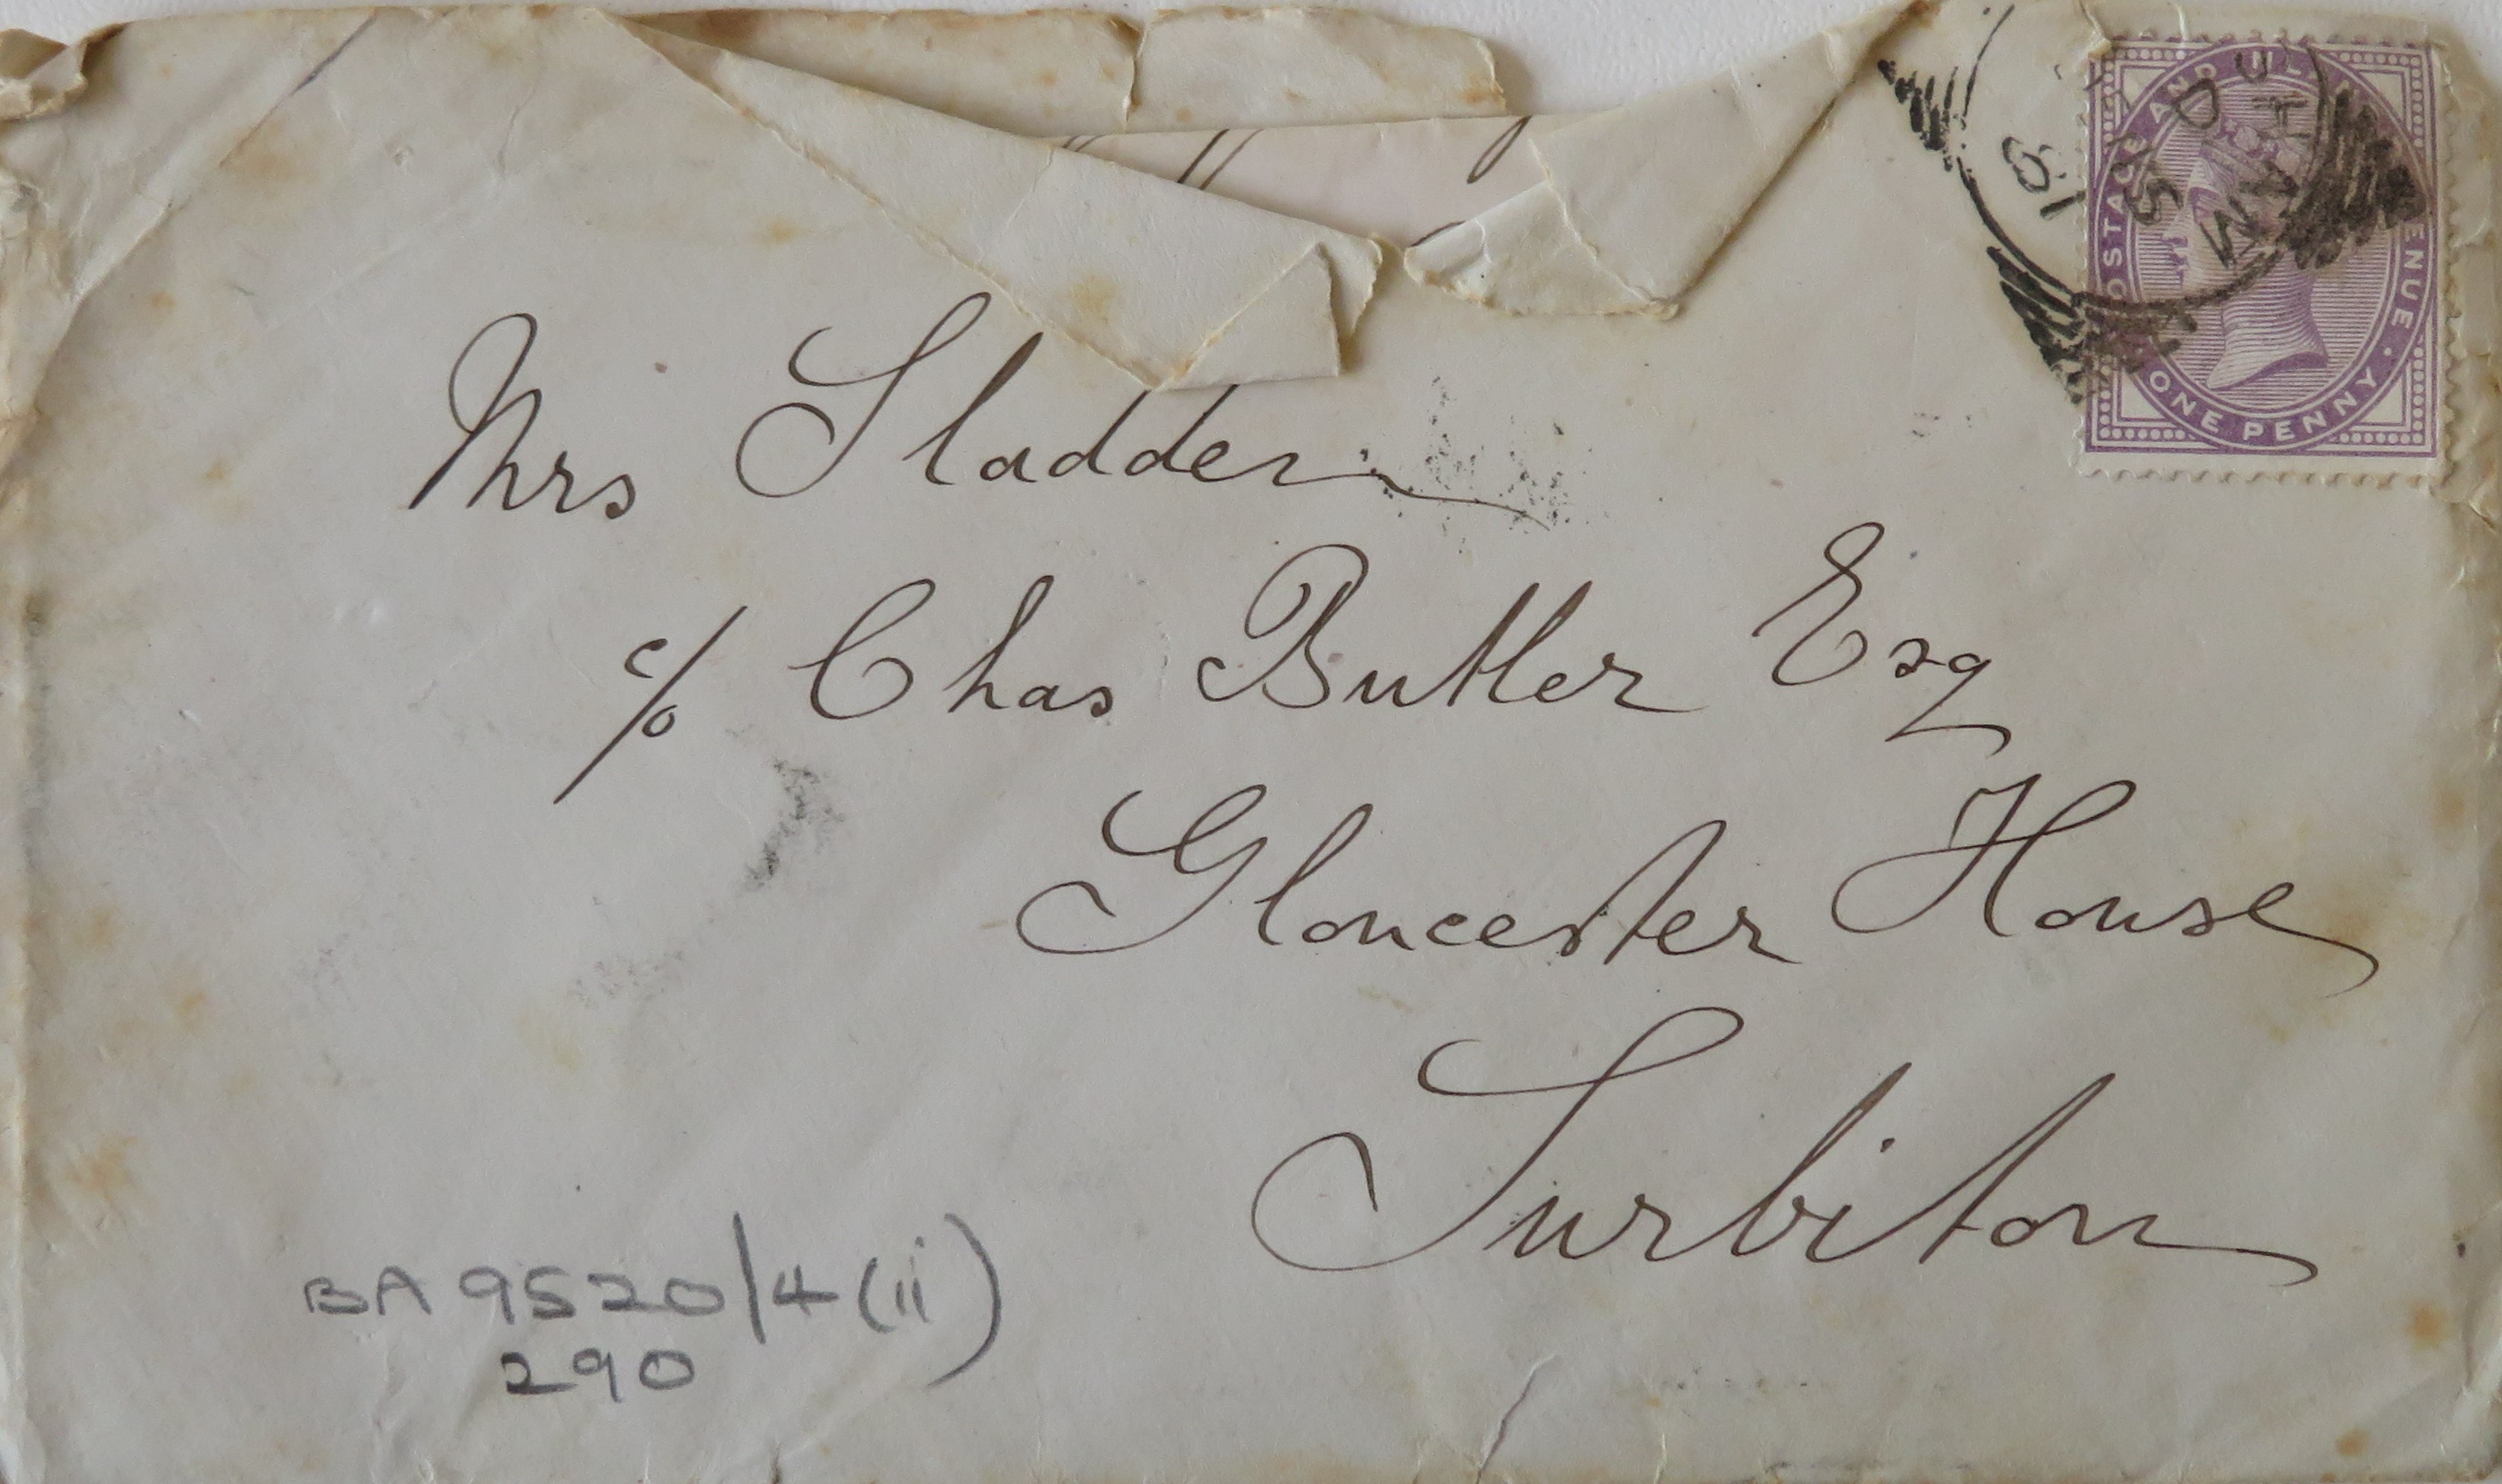 Mrs Sladden
c/o Chas Butler Esq
Gloucester House
Surbiton
BA 9520/4(ii)
290
POSTAGE AND INLAND REVENUE · ONE PENNY ·